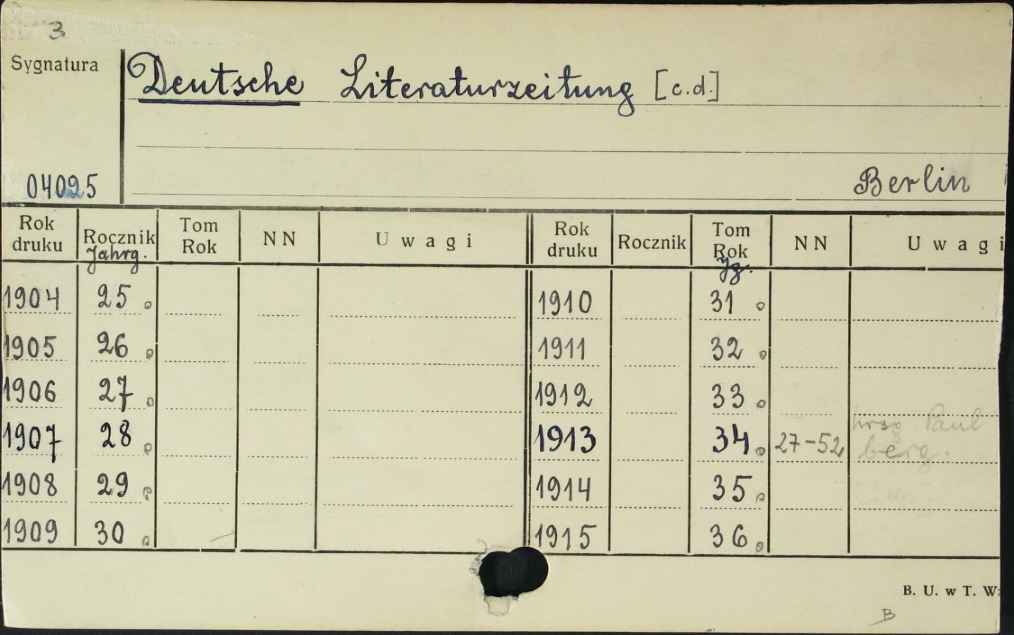 3
Sygnatura
Deutsche Literaturzeitung [c.d.]
04025
Berlin
Rok druku Rocznik Jahrg. Tom Rok NN Uwagi Rok druku Rocznik Tom Rok Jg. NN Uwagi
1904 25 1910 31
1905 26 1911 32
1906 27 1912 33
1907 28 1913 34 27-52 hrsg Paul
berg.
1908 29 1914 35
1909 30 1915 36
B. U. w T. W:
B